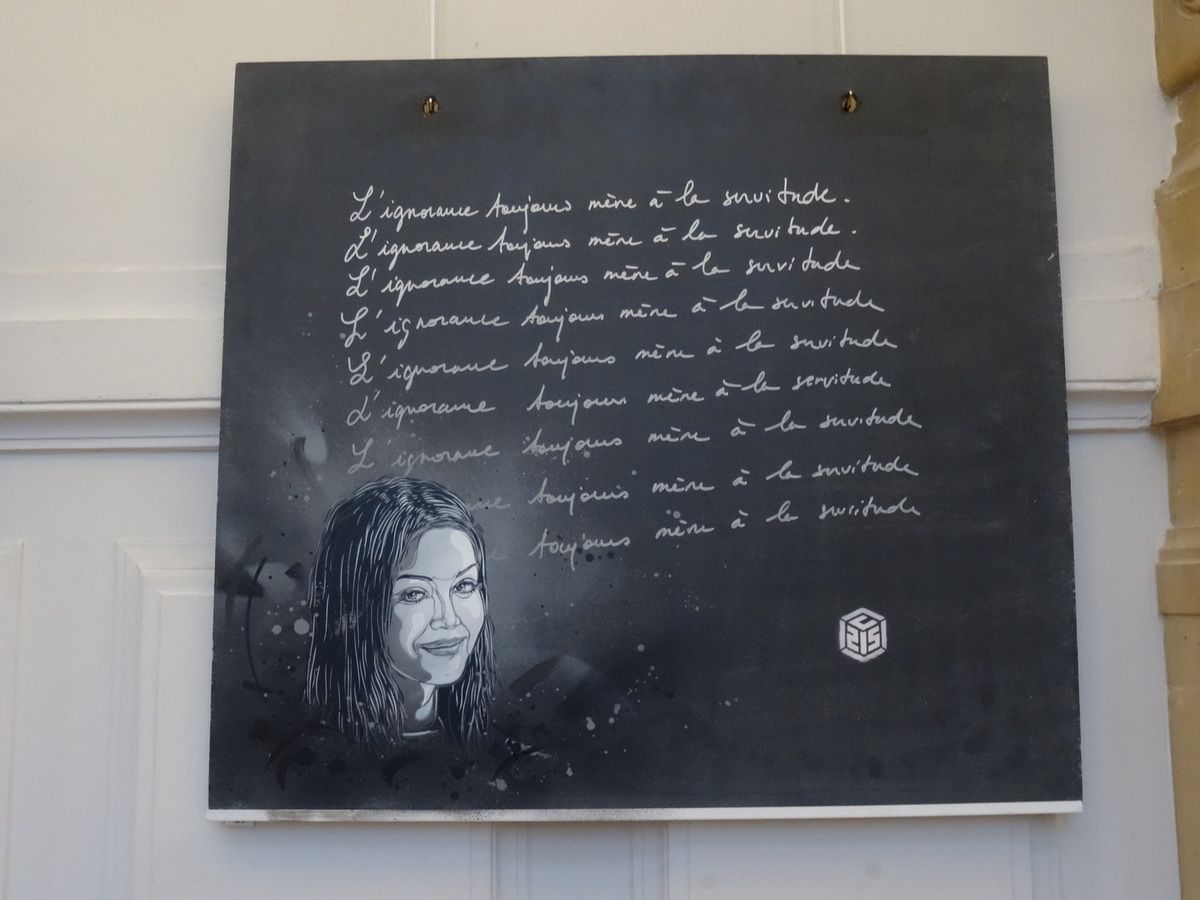 L'ignorance toujours mène à la servitude.
L'ignorance toujours mène à la servitude.
L'ignorance toujours mène à la servitude
L'ignorance toujours mène à la servitude
L'ignorance toujours mène à la servitude
L'ignorance toujours mène à la servitude
L'ignorance toujours mène à la servitude
toujours mène à la servitude
toujours mène à la servitude
C215